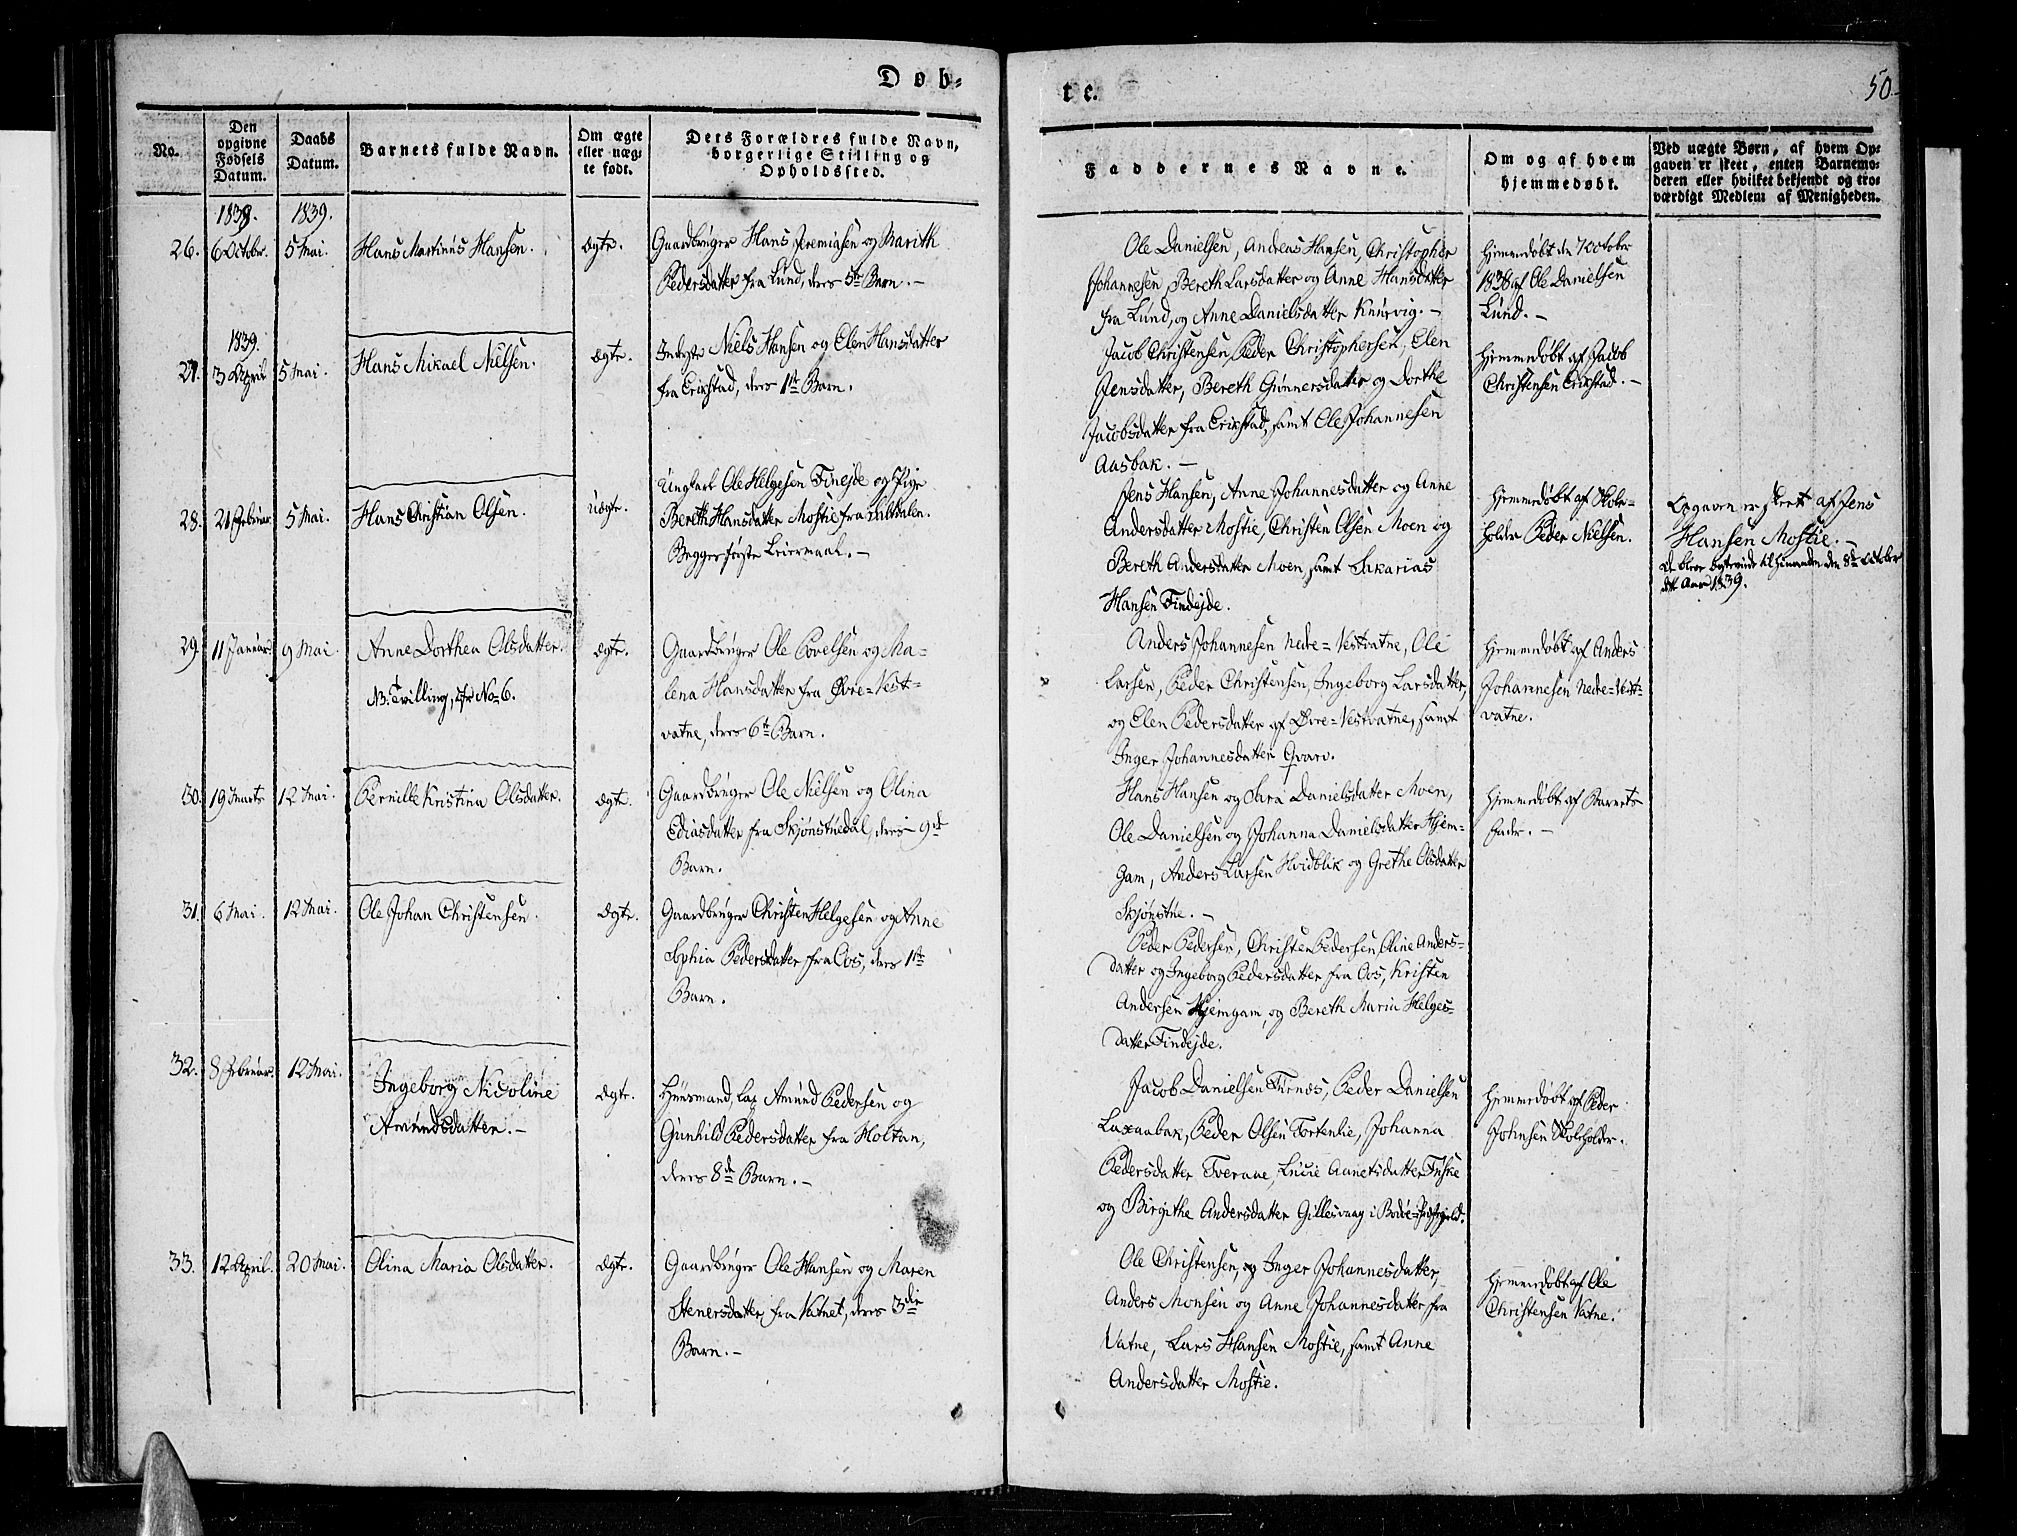 Døb-
te.
50
No.
Den
opgivne
Fødsels
Datum.
Daabs
Datum.
Barnets fulde Navn.
Om ægte
eller uæg-
te født.
Dets Forældres fulde Navn,
borgerlige Stilling og
Opholdssted.
Faddernes Navne.
Om og af hvem
hjemmedøbt.
Ved uægte Børn, af hvem Op-
gaven er skeet, enten Barnemo-
deren eller hvilket bekjendt og tro-
værdigt Medlem af Menigheden.
1838.
1839.
26. 6 October. 5 Mai. Hans Martinus Hansen. Ægte.
Gaardbruger Hans Jeremiasen og Marith
Pedersdatter fra Lund, deres 5te Barn. -
Ole Danielsen, Andreas Hansen, Christopher
Johannesen, Bereth Larsdatter og Anne Hansdatter
fra Lund, og Anne Danielsdatter Knurvig. -
Hjemmedøbt den 7 October
1838 af Ole Danielsen
Lund. -
1839.
27. 3 April 5 Mai. Hans Mikael Nielsen. Ægte.
Inderste Niels Hansen og Elen Hansdatter
fra Erikstad, deres 1te Barn.
Jacob Christensen, Peder Christophersen, Elen
Jensdatter, Bereth Gunnersdatter og Dorthe
Jacobsdatter fra Erikstad, samt Ole Johannesen
Aasbak. -
Hjemmedøbt af Jacob
Christensen Erikstad. -
28. 21 Februar 5 Mai. Hans Christian Olsen. Uægte.
Ungkarl Ole Helgesen Finejde og Pige
Bereth Hansdatter Mostie fra Miltdalen.
Begges første Leiermaal. -
Jens Hansen, Anne Johannesdatter og Anne
Andersdatter Mostie, Christen Olsen Moen og
Bereth Andersdatter Moen, samt Sakarias
Hansen Findejde.
Hjemmedøbt af Skole-
holder Peder Nielsen.
Opgaven er skeet af Jens
Hansen Mostie. -
De bleve egteviede til hinanden den 8de October
dette Aar 1839.
29. 11 Januar 9 Mai. Anne Dorthea Olsdatter. Ægte.
NB. Tvilling, cfr No 6.
Gaardbruger Ole Povelsen og Ma-
lena Hansdatter fra Øvre-Vest-
vatne, deres 6te Barn.
Anders Johannesen Nedre-Vestvatne, Ole
Larsen, Peder Christensen, Ingeborg Larsdatter,
og Elen Pedersdatter af Øvre-Vestvatne, samt
Inger Johannesdatter Qvarv.
Hjemmedøbt af Anders
Johannesen Nedre-Vest-
vatne.
30. 19 Marts 12 Mai. Pernille Kristina Olsdatter. Ægte.
Gaardbruger Ole Nielsen og Olina
Ediasdatter fra Skjønstuedal, deres 9de
Barn.
Hans Hansen og Sara Danielsdatter Moen,
Ole Danielsen og Johanna Danielsdatter Hjem-
gam, Anders Larsen Hvidblik og Grethe Olsdatter
Skjønstue. -
Hjemmedøbt af Barnets
Fader. -
31. 6 Mai. 12 Mai. Ole Johan Christensen. Ægte.
Gaardbruger Christen Helgesen og Anne
Sophia Pedersdatter fra Oos, deres 1te
Barn.
Peder Pedersen, Christen Pedersen, Oline Anders-
datter og Ingeborg Pedersdatter fra Oos, Kristen
Andersen Hjemgam, og Bereth Maria Helges-
datter Findejde.
32. 8 Februar. 12 Mai. Ingeborg Nicoline
Amundsdatter. - Ægte.
Huusmand, Lap Amund Pedersen og
Gunhild Pedersdatter fra Holtan,
deres 8de Barn. -
Jacob Danielsen Furnæs, Peder Danielsen
Laxaabak, Peder Olsen Tortenlie, Johanna
Pedersdatter Tveraae, Lucie Aanetsdatter Fuske
og Birgithe Andersdatter Gillesvaag i Bodøe-Præstegield.
Hjemmedøbt af Peder
Johnsen Skoleholder.
33. 12 April. 20 Mai. Olina Maria Olsdatter. Ægte.
Gaardbruger Ole Hansen og Maren
Stenersdatter fra Vatnet, deres 3die
Barn. -
Ole Christensen, og Inger Johannesdatter,
Anders Monsen og Anne Johannesdatter fra
Vatne, Lars Hansen Mostie, samt Anne
Andersdatter Mostie.
Hjemmedøbt af Ole
Christensen Vatne.